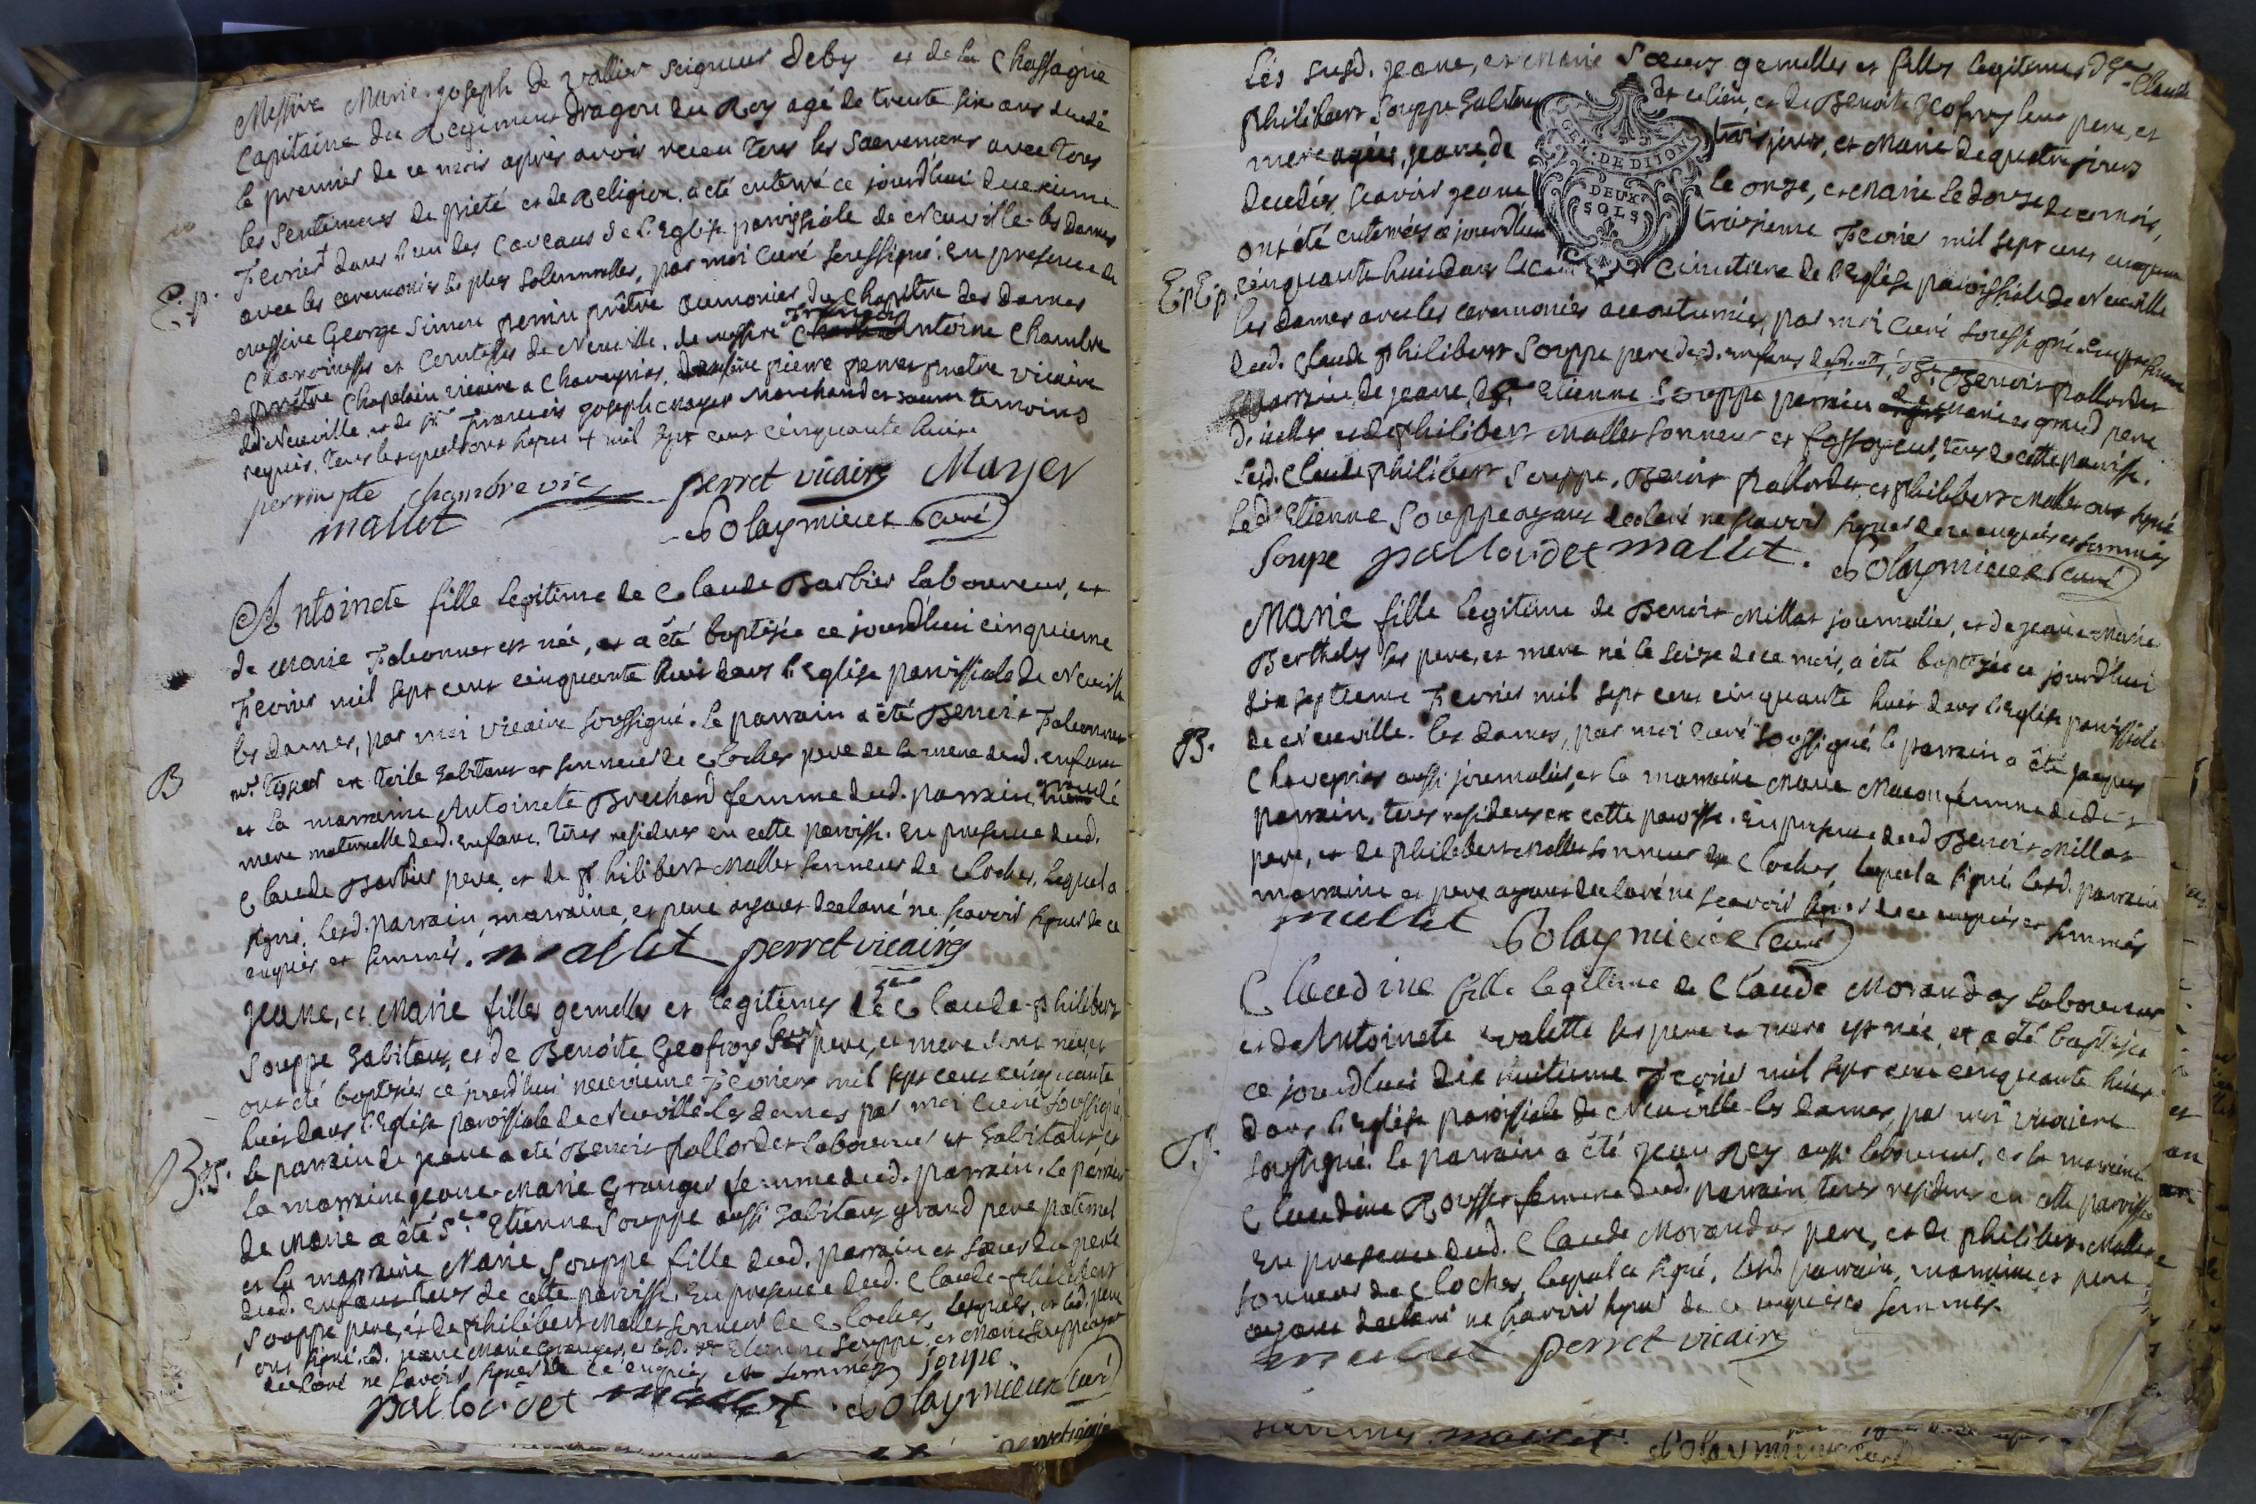 Messire Marie-joseph de Vallier seigneur Deby et de la Chassagne
Capitaine du Regiment Dragon du Roy agé de trente six ans decedé
le premier de ce mois après avoir receu tous les Sacremens avec tous
les sentimens de pieté et de Religion, a été enterré ce jourd'hui deuxieme
Fevrier dans l'un des Caveaus de l'Eglise paroissiale de Neuville-les Dames
avec les ceremonies les plus solemnelles, par moi Curé soussigné. En presence de
messire George Simon perrin prêtre aumonier du Chapitre des Dames
Chanoinesses et Comtesses de Neuville, de messire François Antoine Chambre
prêtre Chapelain vicaire a Chaveyriat, pierre perret prêtre vicaire
de Neuville, et de Sr François joseph Mayer Marchand temoins
requis, tous lesquels ont signé + mil sept cent cinquante huit
E.p.
perrin ptre chambre vic perret vicaire Mayer
mallet Solaymieux Curé
Antoinete fille legitime de Claude Barbier laboureur, et
de Marie Falconnet est née, et a été baptisée ce jourd'hui cinquieme
Fevrier mil sept cent cinquante huit dans l'Eglise paroissiale de Neuville
les dames, par moi vicaire soussigné. le parrain a été Benoit Falconnet
B
mr. tissier en toile habitant et sonneur de cloches pere de la mere dud. enfant
et la marraine Antoinete Bruchard femme dud. parrain,
mere maternelle dud. enfant. tous residens en cette paroisse. En presence dud.
Claude Barbier pere, et de philibert Mallet sonneur de Cloches, lequel a
signé, lesd. parrain, marraine, et pere ayant declaré ne scavoir signer de ce
enquis et sommés. mallet perret vicaire
jeane, et Marie filles gemelles et legitimes de Claude-philibert
Souppe habitant, et de Benoite Geofroy leur pere, et mere sont nées, et
ont été baptisées ce jourd'hui neuvieme Fevrier mil sept cent cinquante
huit dans l'Eglise paroissiale de Neuville-les dames par moi Curé soussigné
B.B.
le parrain de jeane a été Benoit pallordet laboureur et habitant et
la marraine jeane-Marie Granger femme dud. parrain. le parrain
de Marie a été Sr. Etienne Souppe aussi habitant grand pere paternel
et la marraine Marie Souppe fille dud. parrain et soeur du pere
dud. enfant tous de cette paroisse. En presence dud. Claude-philibert
Souppe pere, et de philibert Mallet sonneur de Cloches, lesquels, et led. pere
ont signé, lad. jeane Marie Granger, et led. Sr Etienne Souppe, et Marie Souppe ayant
declaré ne scavoir signer de ce enquis et sommés soupe
pallordet mallet Solaymieux Curé
Les susd. jeane, et Marie Soeurs gemelles et filles legitimes de Sr Claude
philibert Souppe habitant de ce lieu, et de Benoite Geofroy leur pere, et
mere agées, jeane de trois jours, et Marie de quatre jours
GEN. DE DIJON
DEUX SOLS
decedées, scavoir jeane le onze, et Marie le douze de ce mois,
ont été enterrées ce jourd'hui treizieme Fevrier mil sept cent cinquante
E.p. E.p.
cinquante huit dans le cimetiere de l'Eglise paroissiale de Neuville
les dames avec les ceremonies accoutumées, par moi Curé soussigné. En presence
dud. Claude philibert Souppe pere desd. enfans Benoit pallordet
parrain de jeane, de Sr. Etienne Souppe parrain de Marie et grand pere
d'icelles et de philibert Mallet sonneur et fossoyeur, tous de cette paroisse.
Lesd. Claude philibert Souppe, Benoit pallordet, et philibert Mallet ont signé
led. Etienne Souppe ayant declaré ne scavoir signer de ce enquis et sommés
Soupe pallordet mallet. Solaymieux Curé
Marie fille legitime de Benoit Millat journalier, et de jeane-Marie
Berthely ses pere, et mere né le seize de ce mois, a été baptisée ce jourd'hui
dix septieme Fevrier mil sept cent cinquante huit dans l'Eglise paroissiale
B.
de Neuville-les dames, par moi curé soussigné, le parrain a été jaques
Chaveyriat aussi journalier, et la marraine Marie Macon femme dudit
parrain, tous residens en cette paroisse. En presence dud Benoit Millat
pere, et de philibert Mallet sonneur de Cloches, lequel a signé, lesd. parrain
marraine et pere ayant declaré ne scavoir signer de ce enquis et sommés
mallet Solaymieux Curé
Claudine fille legitime de Claude Morandas laboureur
et de Antoinete valette ses pere et mere est née, et a été baptisée
ce jourd'hui dix huitieme Fevrier mil sept cent cinquante huit
dans l'Eglise paroissiale de Neuville-les dames, par moi vicaire
B.
soussigné. le parrain a été jean Rey aussi laboureur, et la marraine
Claudine Rousset femme dud. parrain tous residens en cette paroisse
En presence dud. Claude Morandas pere, et de philibert Mallet
sonneur de Cloches, lequel a signé, lesd. parrain, marraine et pere
ayant declaré ne scavoir signer de ce enquis et sommés.
mallet perret vicaire
mallet Solaymieux Curé